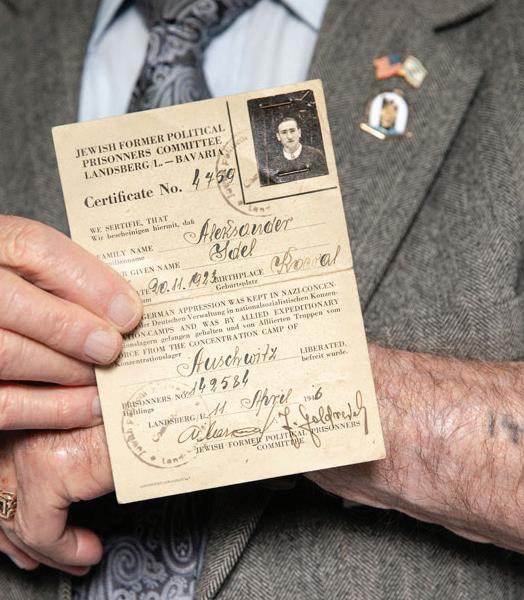 JEWISH FORMER POLITICAL
PRISONNERS COMMITTEE
LANDSBERG/L. – BAVARIA
Certificate No. 4759
WE SERTIFIE, THAT
Wir bescheinigen hiermit, daß
FAMILY NAME Aleksander
Familienname
OR GIVEN NAME Idel
20.11.1923 BIRTHPLACE
Geburtsplatz
GERMAN APPRESSION WAS KEPT IN NAZI-CONCEN-
der Deutschen Verwaltung in nationalsozialistischen Konzen-
TION-CAMPS AND WAS BY ALLIED EXPEDITIONARY
gefangen gehalten und von Alliierten Truppen vom
ORCE FROM THE CONCENTRATION CAMP OF
Konzentrationslager Auschwitz LIBERATED.
befreit wurde.
PRISONNERS NO. 149584
LANDSBERG/L. 11 April 1946
JEWISH FORMER POLITICAL PRISONERS
COMMITTEE